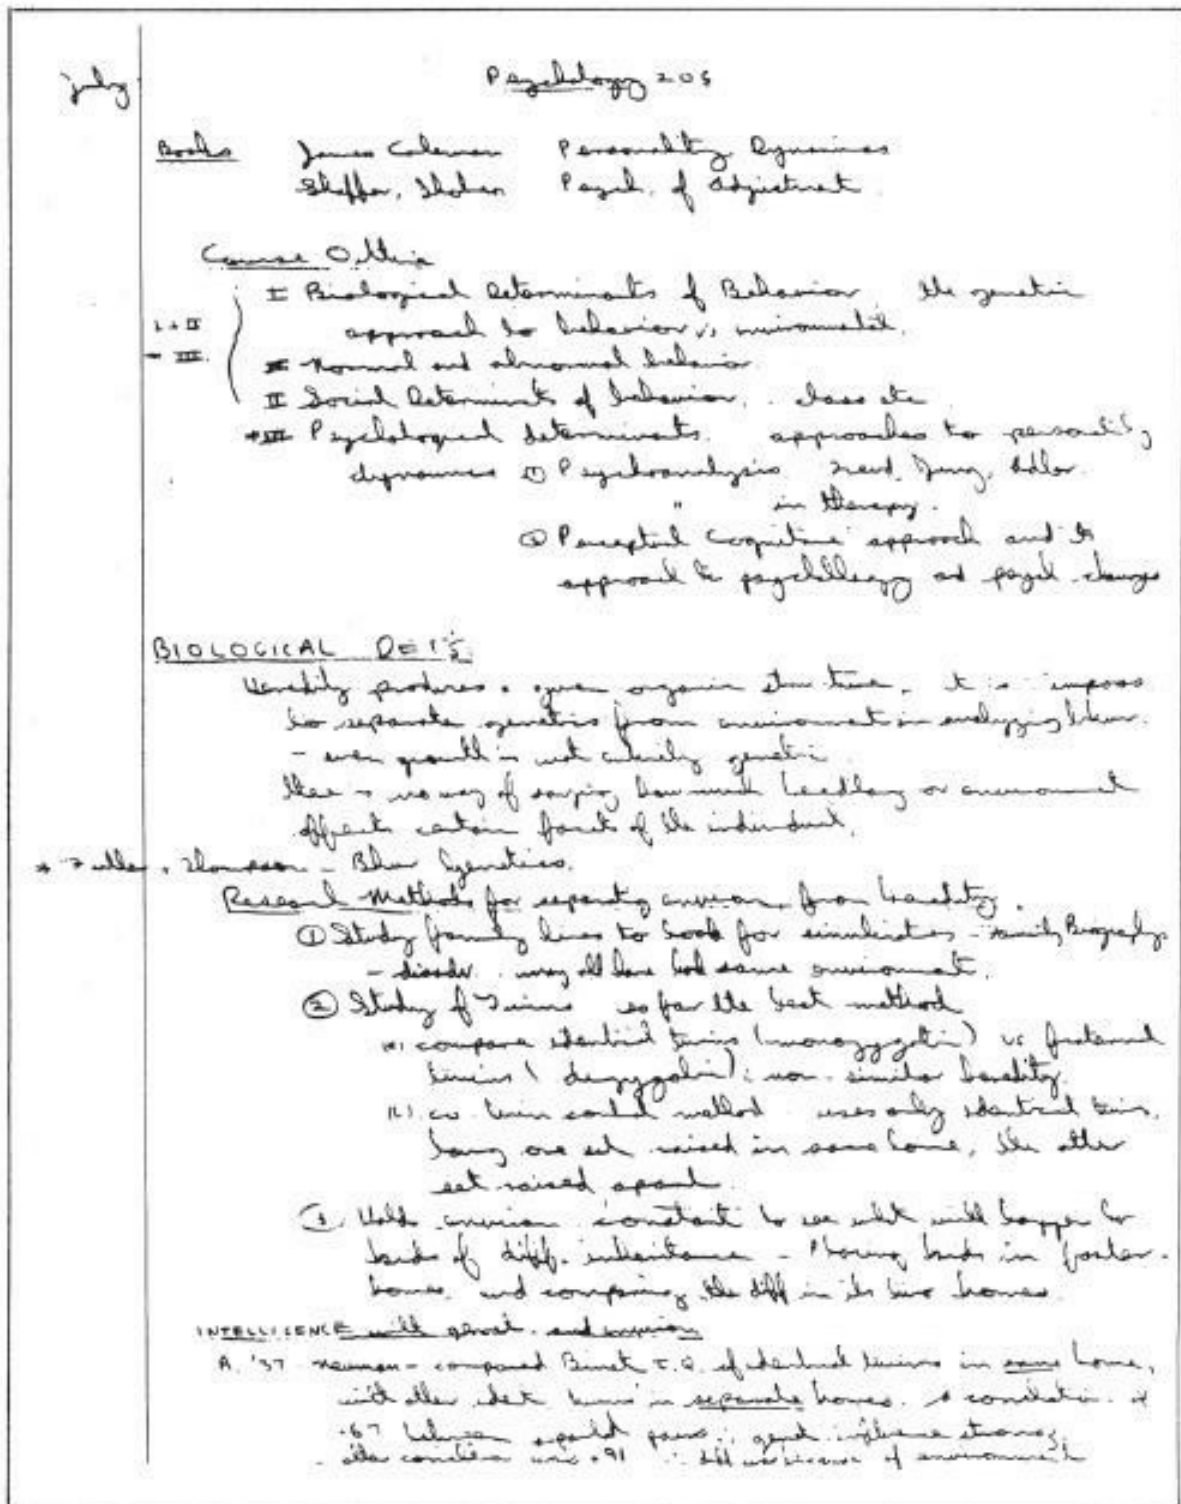 July
Psychology 205
Books James Coleman Personality Dynamics
Shaffer, Shoben Psych. of Adjustment
Course Outline
I Biological Determinants of Behavior the genetic
approach to behavior vs environmental.
I + II
+ III.
II Normal and abnormal behavior
II Social Determinants of behavior, class etc
III Psychological determinants. approaches to personality
dynamics ① Psychoanalysis Freud, Jung, Adler.
" in therapy.
② Perceptual Cognitive approach and its
approach to psychotherapy and psych. changes
BIOLOGICAL DET'S.
Heredity produces a given organic structure. It is imposs
to separate genetics from environment in analyzing
- even growth is not entirely genetic
there is no way of saying how much heredity or environment
affects certain facets of the individual.
* Fuller + Thompson - Bhav Genetics.
Research Methods for separating environ. from heredity.
① Study family lines to look for similarities - Family Biography
- disadv. may all have had same environment.
② Study of Twins so far the best method
(a) compare identical twins (monozygotic) vs fraternal
twins (dizygotic); non-similar heredity.
(b) co twin control method uses only identical twins,
having one set raised in same home, the other
set raised apart.
Hold environ. constant to see what will happen to
kids of diff. inheritance - Placing kids in foster-
homes and comparing the diff in the two homes.
INTELLIGENCE with genet. and environ
A. '37 Newman - compared Binet I.Q. of identical twins in same home,
with other ident. twins in separate homes. A correlation of
.67 between apart pairs ∴ genet. influence strong.
other correlation was .91 ∴ of environment